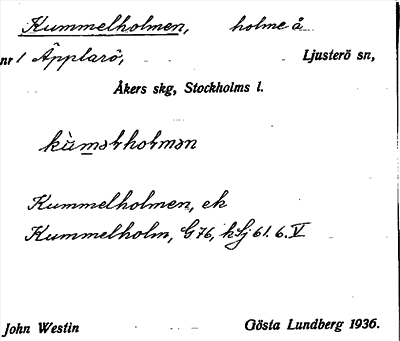 Kummelholmen, holme å
nr 1 Äpplarö, Ljusterö sn,
Åkers skg, Stockholms l.
kùməlholmən
Kummelholmen, ek
Kummelholm, G 76, kSj 61.6.V
John Westin Gösta Lundberg 1936.